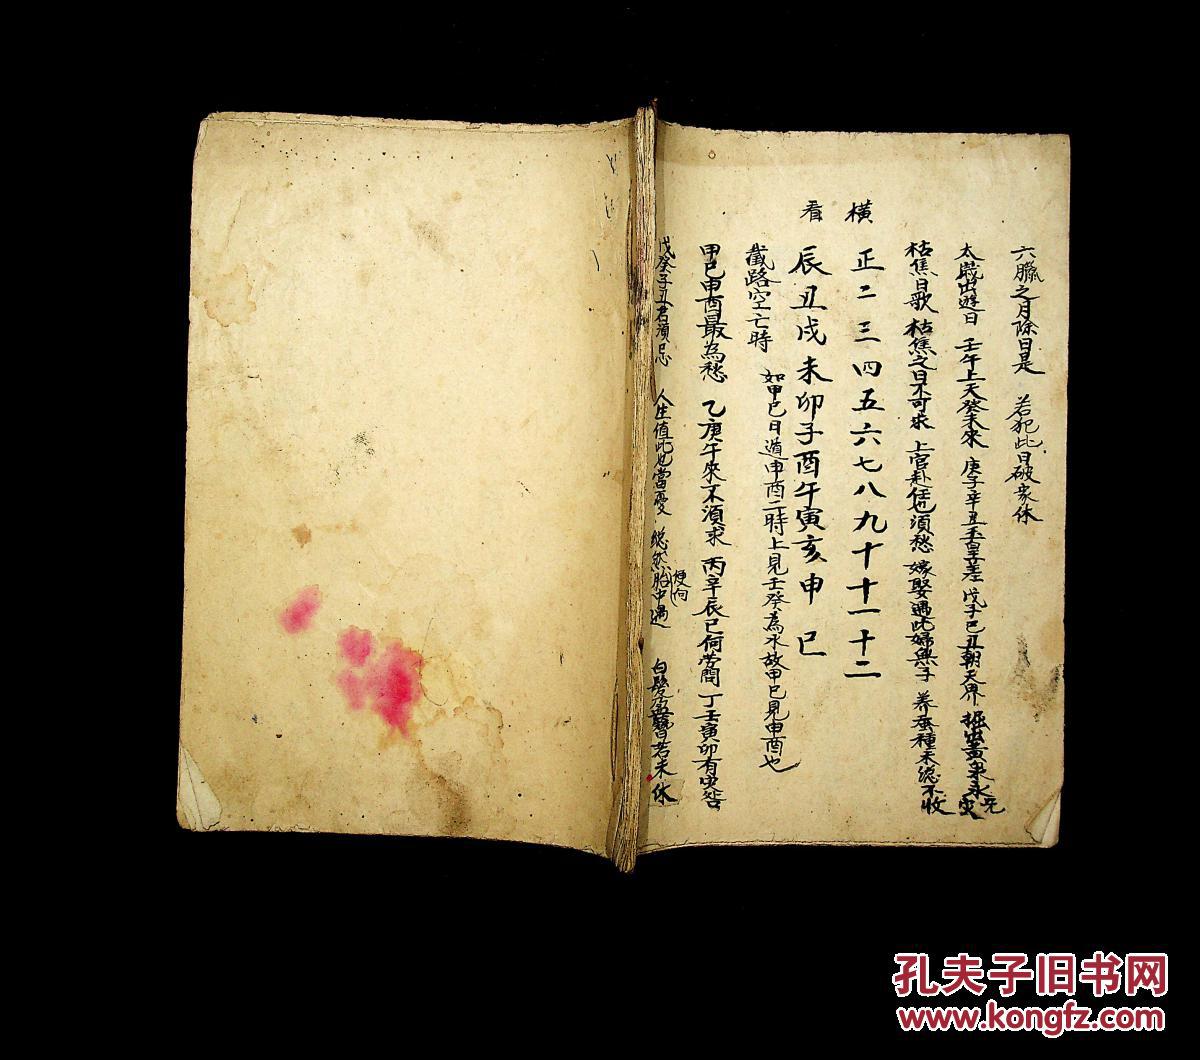 六臘之月除日是 若犯此日破家休
太歲出遊日 壬午上天癸未來 庚子辛丑玉皇差 戊子己丑朝天界 掘出黃泉永无灾
枯焦日歌 枯焦之日不可求 上官赴任也須愁 嫁娶遇此婦無子 養蚕種禾總不收
橫看
正二三四五六七八九十十一十二
辰丑戌未卯子酉午寅亥申巳
截路空亡時 如甲己日遁申酉二時上見壬癸為水故甲己見申酉也
甲己申酉最為愁 乙庚午未不須求 丙辛辰巳何勞問 丁壬寅卯有灾咎
戊癸子丑君須忌 人生值此也當憂 總然胎中遇 白髮盈簪苦未休
便向
孔夫子旧书网
www.kongfz.com